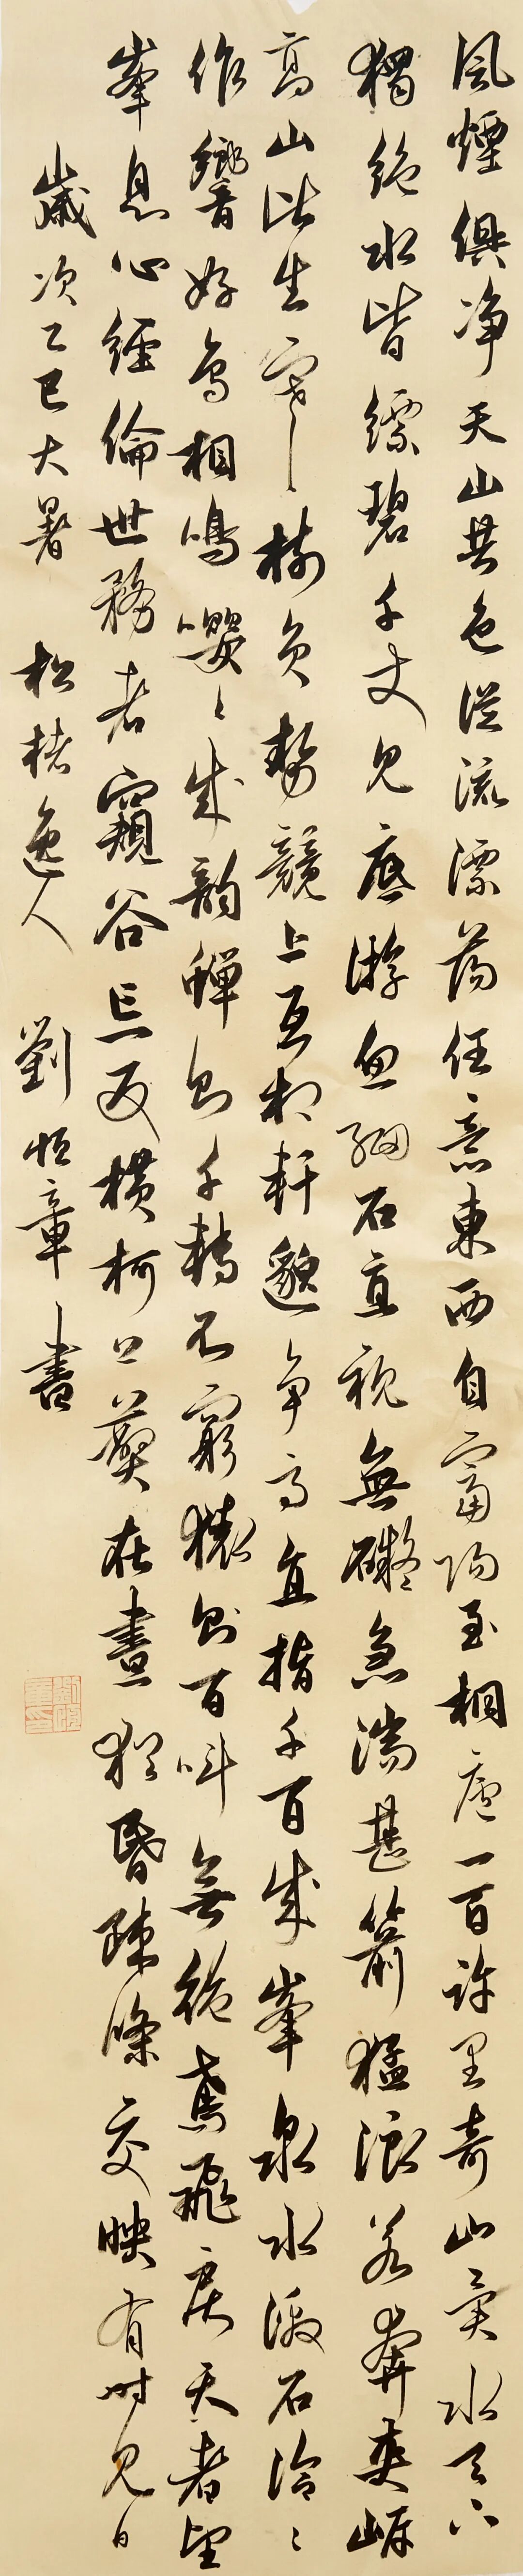 風煙俱净天山共色從流漂蕩任意東西自富陽至桐廬一百許里奇山異水天下
獨絶水皆縹碧千丈見底游魚細石直視無礙急湍甚箭猛浪若奔夾岸
高山皆生寒樹負勢競上互相軒邈爭高直指千百成峯泉水激石泠〻
作響好鳥相鳴嚶〻成韻蟬則千轉不窮猿則百叫無絶鳶飛戾天者望
峯息心經倫世務者窺谷忘反橫柯上蔽在晝猶昏疎條交映有時見日
歲次乙巳大暑 松楮逸人 劉恒章書
劉恒章印